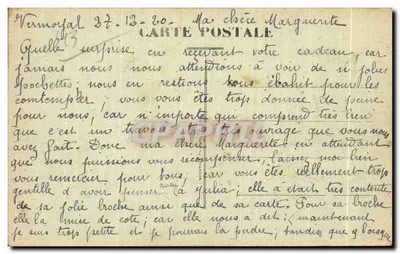 Vermoyal 27-12-20. Ma chère Marguerite
CARTE POSTALE
Quelle surprise en recevant votre cadeau, car
jamais nous nous attendions à voir de si jolies
pochettes, nous en restions tous ébahit pour les
comtempler; vous vous êtes trop donnée de peine
pour nous, car n'importe qui comprend très bien
que c'est un travail ouvrage que vous nous
avez fait. Donc ma chère Marguerite en attendant
que nous puissions vous récompenser, laissez moi bien
vous remercier pour tous, car vous êtes réellement trop
gentille d'avoir penser aussi à Julia; elle a était très contente
de sa jolie broche ainsi que de sa carte. Pour sa broche
elle la mise de cote; car elle nous a dit: maintenant
je suis trop petite et je pourrais la perdre, tandis que lorsque